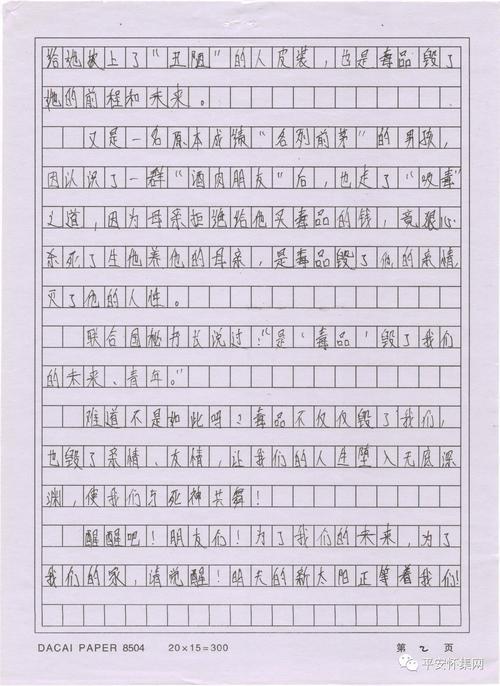 给她披上了“丑陋”的人皮装，也是毒品毁了
她的前程和未来。
又是一名原本成绩“名列前茅”的男孩，
因认识了一群“酒肉朋友”后，也走了“吸毒”
之道，因为母亲拒绝给他买毒品的钱，竟狠心
杀死了生他养他的母亲，是毒品毁了他的亲情，
灭了他的人性。
联合国秘书长说过：“是‘毒品’毁了我们
的未来、青年。”
难道不是如此吗？毒品不仅仅毁了我们，
也毁了亲情、友情，让我们的人生堕入无底深
渊，使我们与死神共舞！
醒醒吧！朋友们！为了我们的未来，为了
我们的家，请觉醒！明天的新太阳正等着我们！
DACAI PAPER 8504 20×15=300 第 2 页
平安怀集网